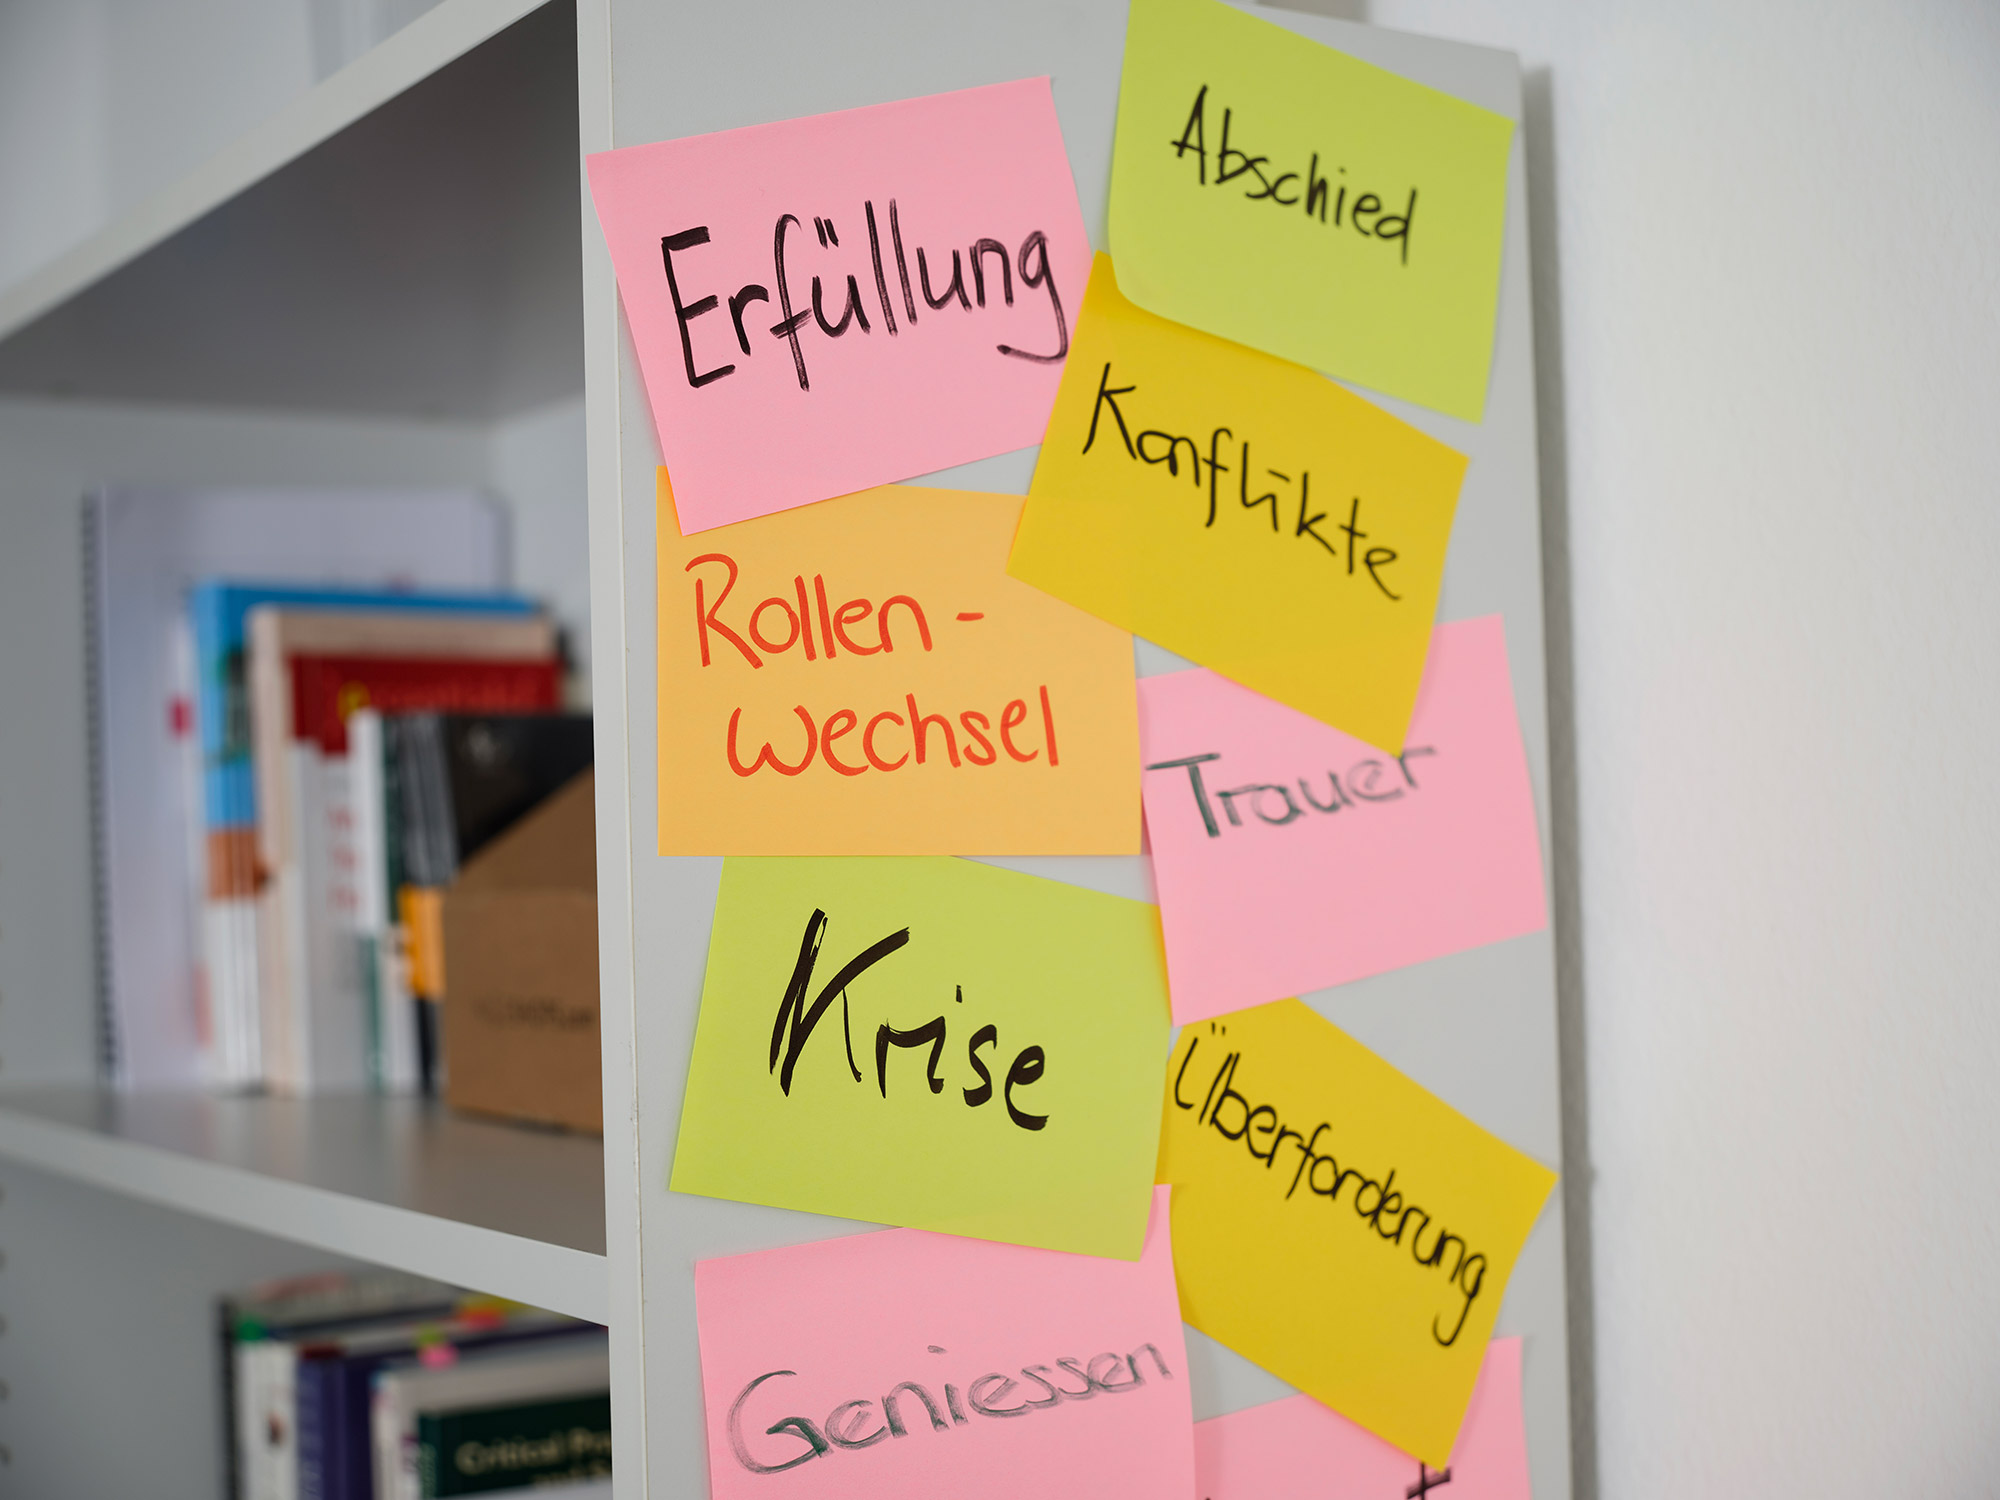 Abschied
Erfüllung
Konflikte
Rollen-
wechsel
Trauer
Krise
Überforderung
Geniessen
Critical